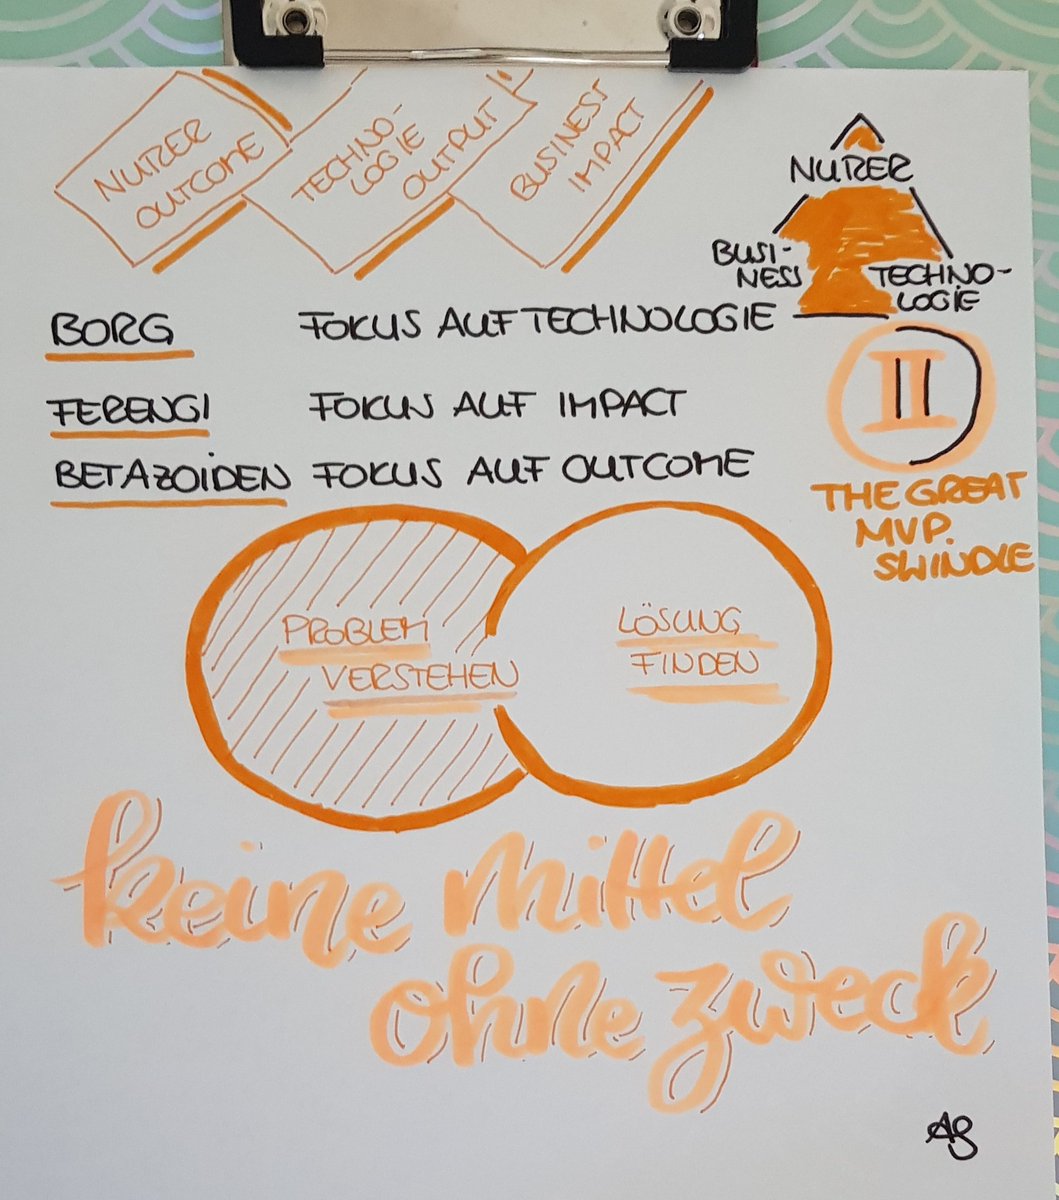 NUTZER
OUTCOME
TECHNO-
LOGIE
OUTPUT
BUSINEST
IMPACT
NUTZER
BUSI-
NESS
TECHNO-
LOGIE
BORG FOKUS AUF TECHNOLOGIE
FERENGI FOKUS AUF IMPACT
BETAZOIDEN FOKUS AUF OUTCOME
II
THE GREAT
MVP.
SWINDLE
PROBLEM
VERSTEHEN
LÖSUNG
FINDEN
keine mittel
ohne zweck